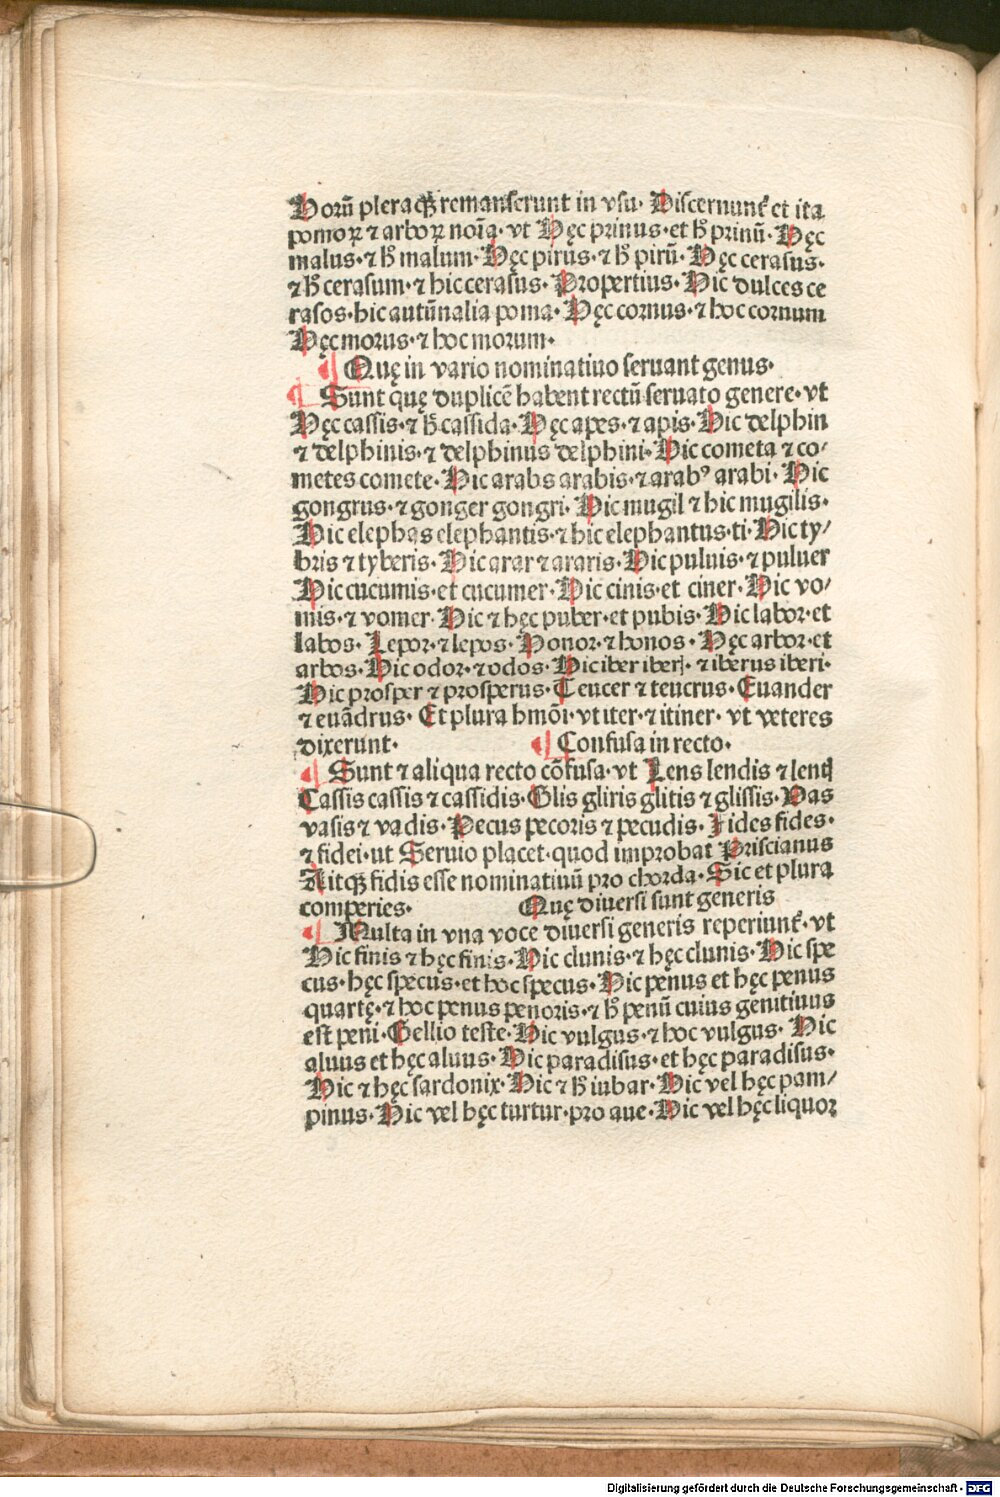 Horū pleraqꝫ remanserunt in vsu· Discernunt᷑ et ita
pomoꝝ ⁊ arboꝝ noīa· vt Hęc prinus· et h̄ prinū· Hęc
malus· ⁊ h̄ malum· Hęc pirus· ⁊ h̄ pirū· Hęc cerasus·
⁊ h̄ cerasum· ⁊ hic cerasus· Propertius· Hic dulces ce
rasos· hic autūnalia poma· Hęc cornus· ⁊ hoc cornum
Hęc morus· ⁊ hoc morum·
¶ Quę in vario nominatiuo seruant genus·
¶ Sunt quę duplicē habent rectū seruato genere· vt
Hęc cassis· ⁊ h̄ cassida· Hęc apes· ⁊ apis· Hic delphin
⁊ delphinis· ⁊ delphinus delphini· Hic cometa ⁊ co/
metes comete· Hic arabs arabis· ⁊ arabꝰ arabi· Hic
gongrus· ⁊ gonger gongri· Hic mugil ⁊ hic mugilis·
Hic elephas elephantis· ⁊ hic elephantus· ti· Hic ty/
bris ⁊ tyberis· Hic arar ⁊ araris· Hic puluis· ⁊ puluer
Hic cucumis· et cucumer· Hic cinis· et ciner· Hic vo/
mis· ⁊ vomer· Hic ⁊ hęc puber· et pubis· Hic labor· et
labos· Lepor· ⁊ lepos· Honor· ⁊ honos· Hęc arbor· et
arbos· Hic odor· ⁊ odos· Hic iber iberj· ⁊ iberus iberi·
Hic prosper ⁊ prosperus· Teucer ⁊ teucrus· Euander
⁊ euādrus· Et plura hmōi· vt iter· ⁊ itiner· vt veteres
dixerunt· ¶ Confusa in recto·
¶ Sunt ⁊ aliqua recto cōfusa· vt Lens lendis ⁊ lentį
Cassis cassis ⁊ cassidis· Glis gliris glitis ⁊ glissis· Vas
vasis ⁊ vadis· Pecus pecoris ⁊ pecudis· Fides fides·
⁊ fidei· ut Seruio placet· quod improbat Priscianus
Aitqꝫ fidis esse nominatiuū pro chorda· Sic et plura
comperies· Quę diuersi sunt generis
¶ Multa in vna voce diuersi generis reperiunt᷑· vt
Hic finis ⁊ hęc finis· Hic clunis· ⁊ hęc clunis· Hic spe
cus· hęc specus· et hoc specus· Hic penus et hęc penus
quartę· ⁊ hoc penus penoris· ⁊ h̄ penū cuius genitiuus
est peni· Gellio teste· Hic vulgus· ⁊ hoc vulgus· Hic
aluus et hęc aluus· Hic paradisus· et hęc paradisus·
Hic ⁊ hęc sardonix· Hic ⁊ h̄ iubar· Hic vel hęc pam/
pinus· Hic vel hęc turtur· pro aue· Hic vel hęc liquor
Digitalisierung gefördert durch die Deutsche Forschungsgemeinschaft - DFG